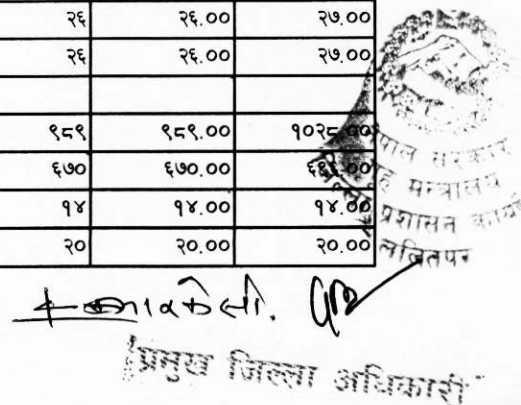 २६ २६.०० २७.००
२६ २६.०० २७.००
९८९ ९८९.०० १०२८.००
६७० ६७०.०० ६९६.००
१४ १४.०० १४.००
२० २०.०० २०.००
नेपाल सरकार
गृह मन्त्रालय
प्रशासन कार्यालय
ललितपुर
प्रमुख जिल्ला अधिकारी